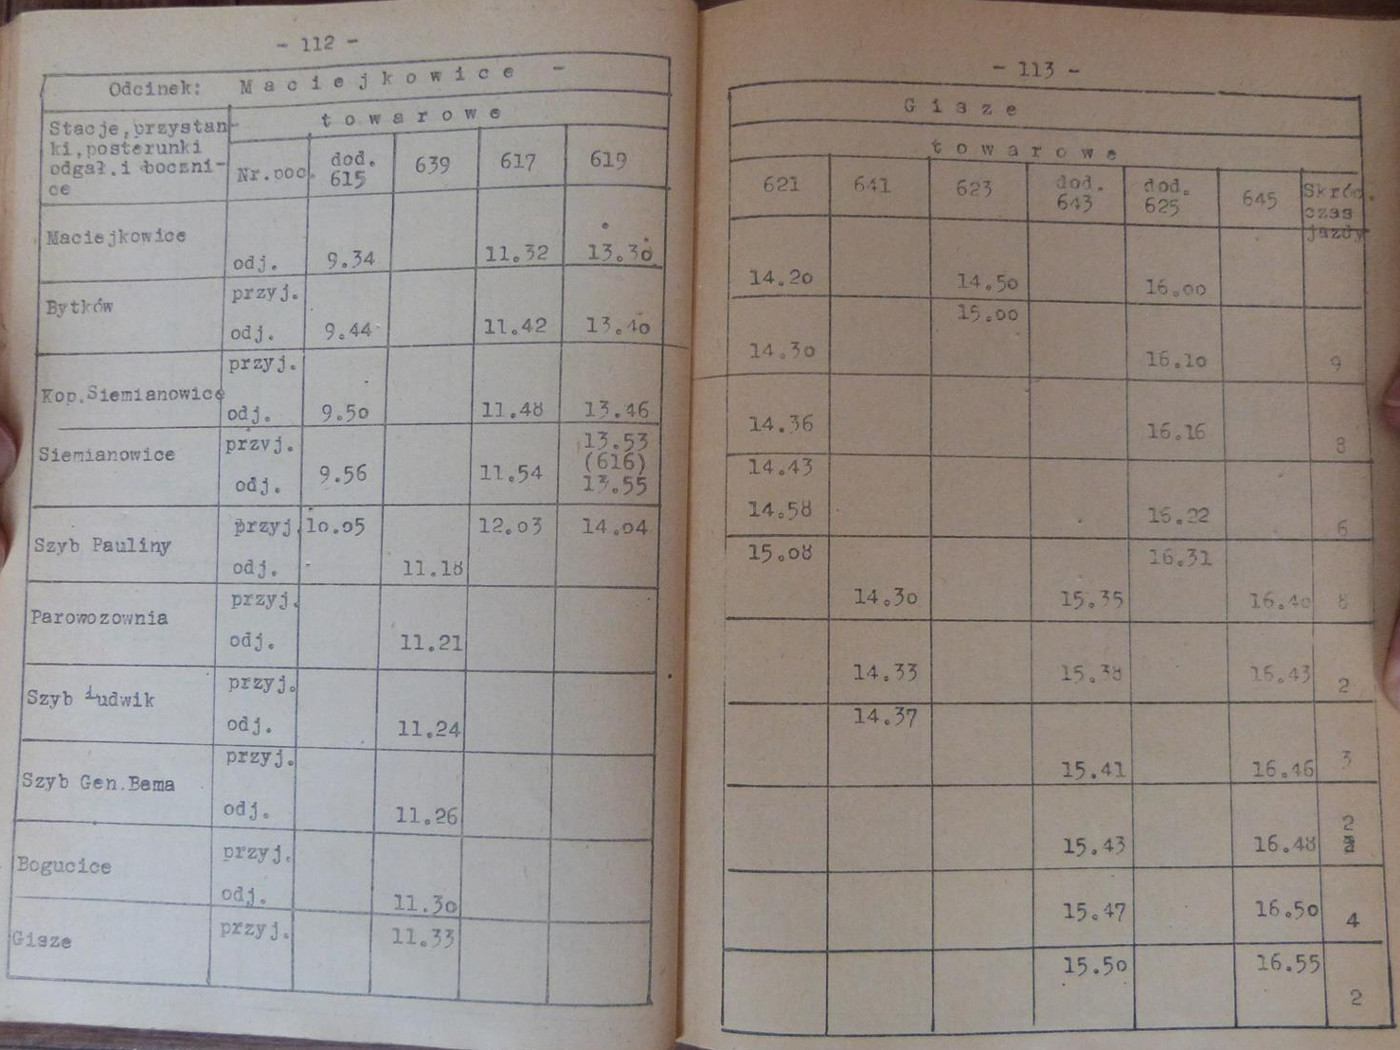 - 112 -
Odcinek: Maciejkowice -
Stacje, przystan-
ki, posterunki
odgał. i boczni-
ce
towarowe
Nr. poc. dod. 615 639 617 619
Maciejkowice
odj. 9.34 11.32 13.30
Bytków przyj.
odj. 9.44 11.42 13.40
Kop. Siemianowice przyj.
odj. 9.50 11.48 13.46
Siemianowice przyj. 13.53
(616)
odj. 9.56 11.54 13.55
Szyb Pauliny przyj. 10.05 12.03 14.04
odj. 11.18
Parowozownia przyj.
odj. 11.21
Szyb Ludwik przyj.
odj. 11.24
Szyb Gen. Bema przyj.
odj. 11.26
Bogucice przyj.
odj. 11.30
Gisze przyj. 11.33
- 113 -
Gisze
towarowe
621 641 623 dod. 643 dod. 625 645 Skróc.
czas
jazdy
14.20 14.50 16.00
15.00
14.30 16.10 9
14.36 16.16 8
14.43
14.58 16.22 6
15.08 16.31
14.30 15.35 16.40 8
14.33 15.38 16.43 2
14.37
15.41 16.46 3
2
15.43 16.48
15.47 16.50 4
15.50 16.55
2